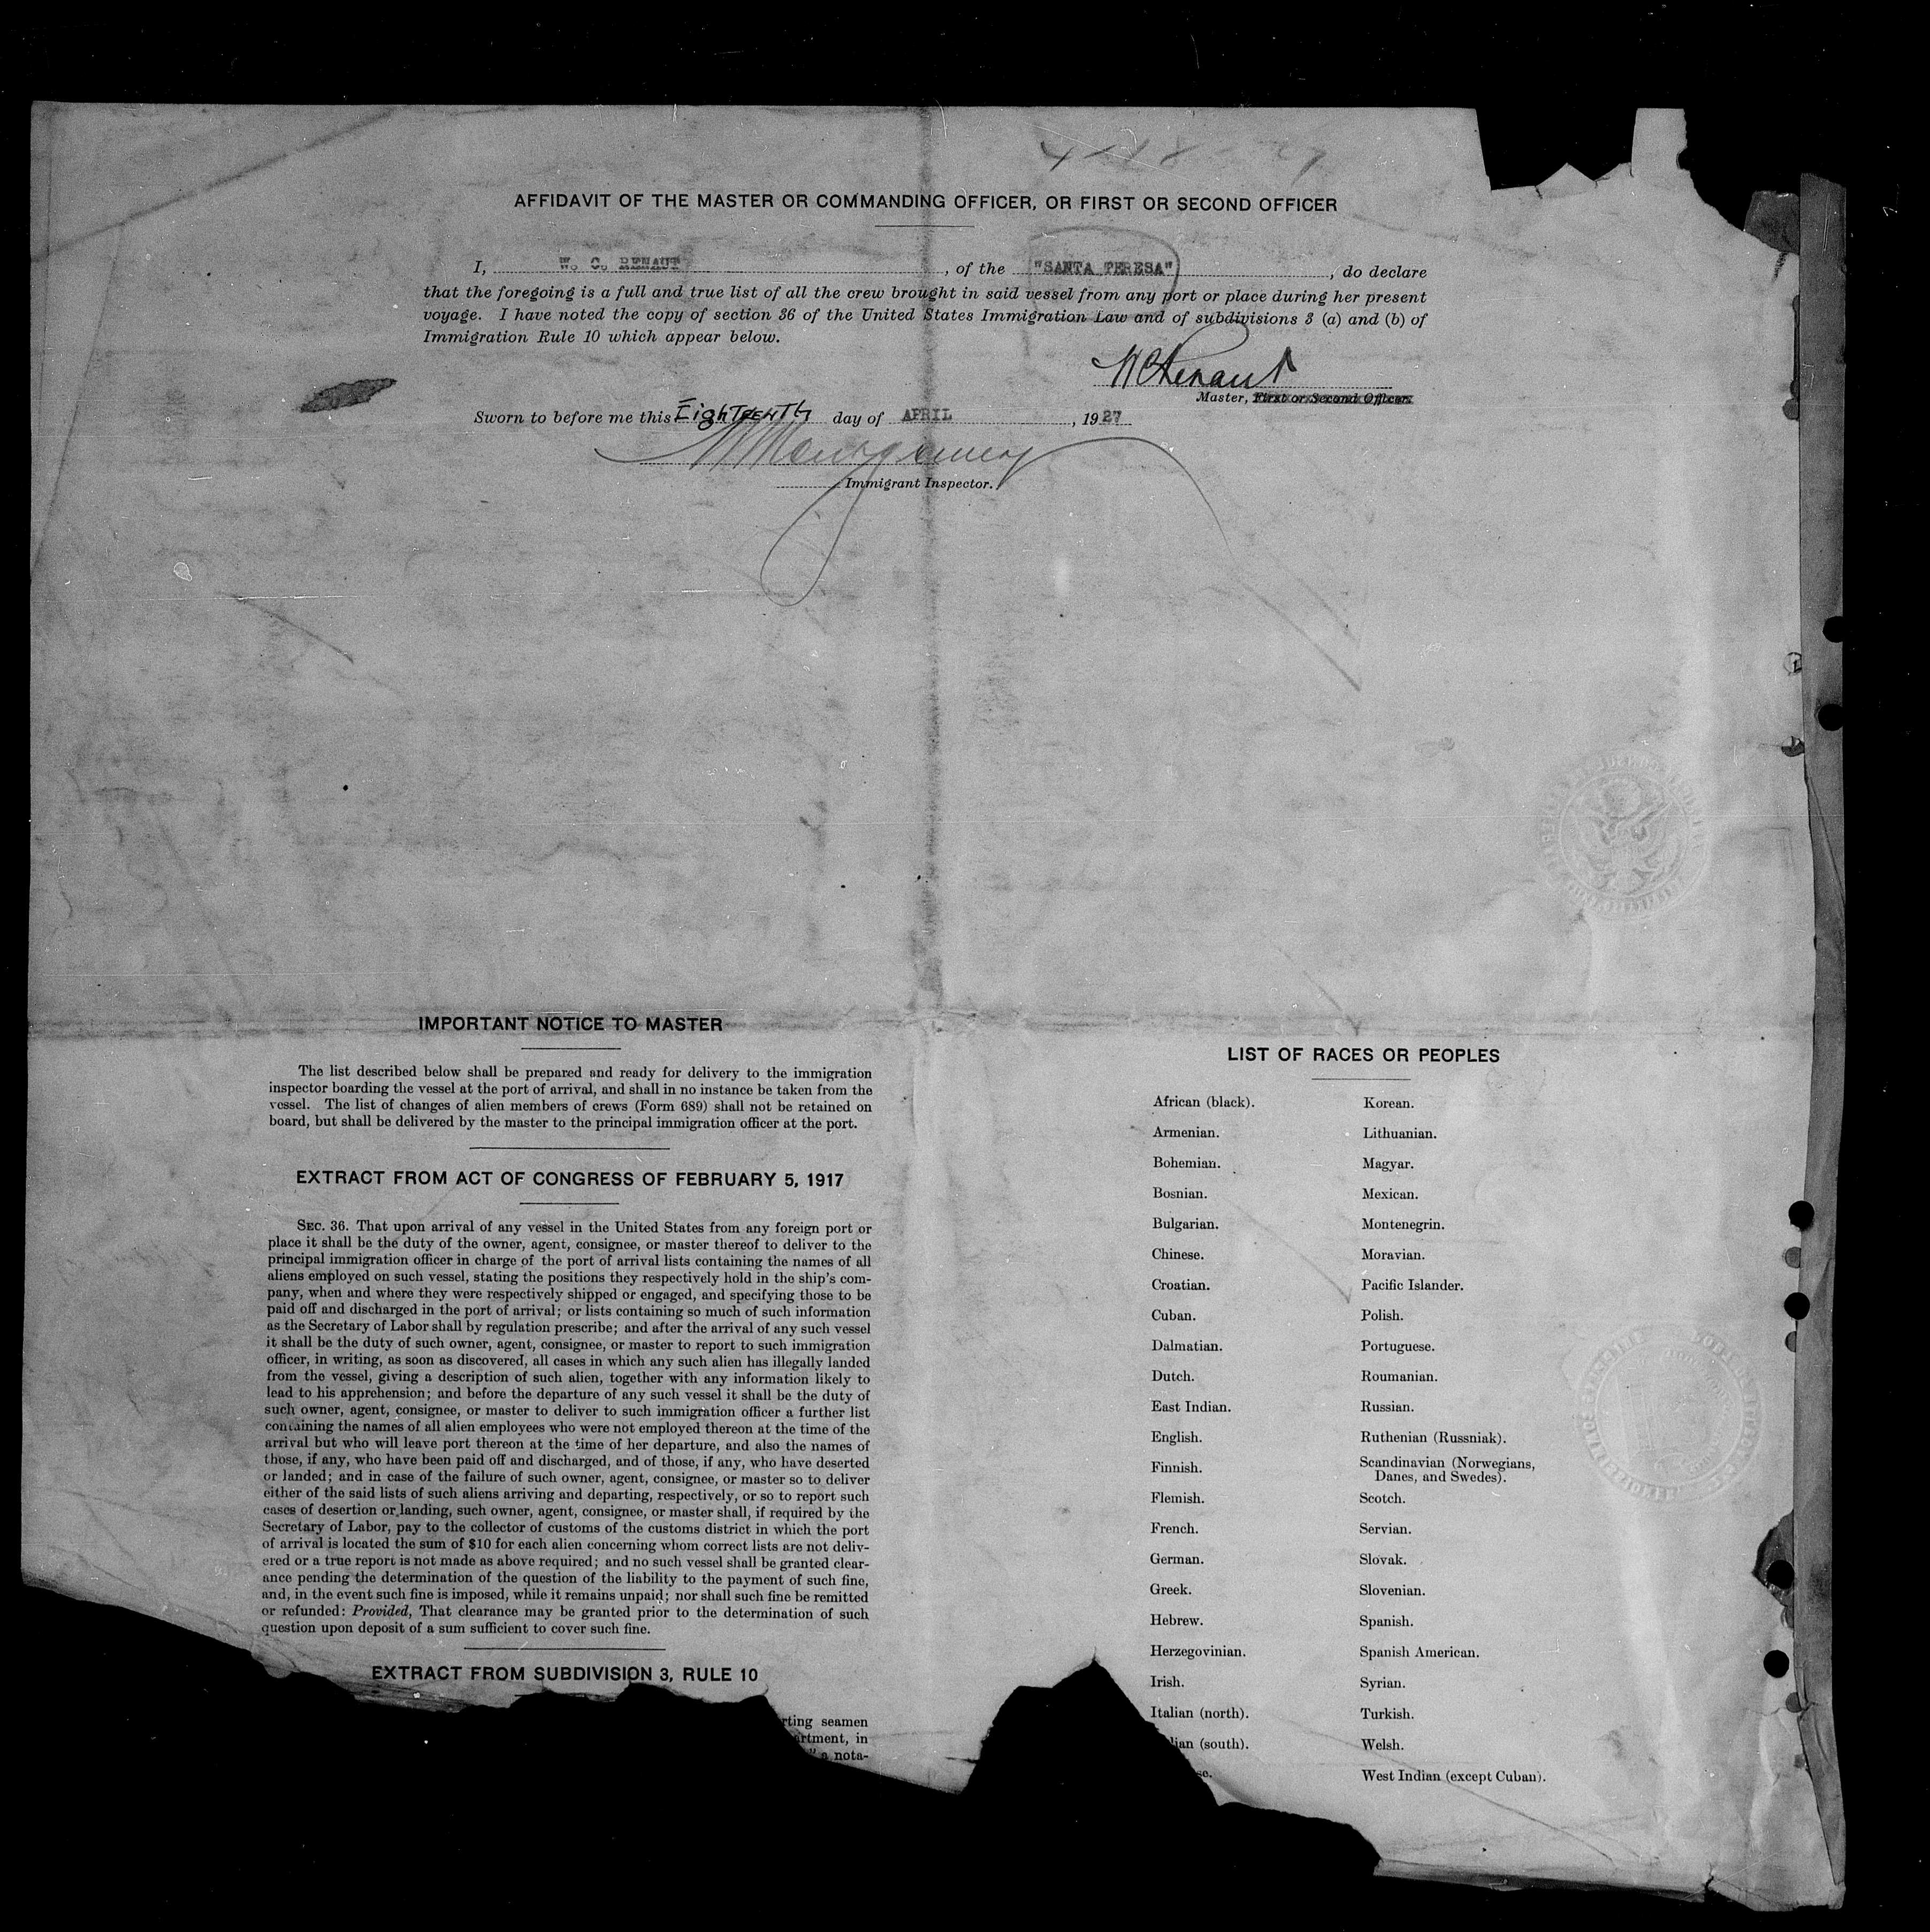 4-18-27
AFFIDAVIT OF THE MASTER OR COMMANDING OFFICER, OR FIRST OR SECOND OFFICER
I, W. C. RENAUT, of the "SANTA TERESA", do declare
that the foregoing is a full and true list of all the crew brought in said vessel from any port or place during her present
voyage. I have noted the copy of section 36 of the United States Immigration Law and of subdivisions 3 (a) and (b) of
Immigration Rule 10 which appear below.
WCRenaut
Master, First or Second Officer.
Sworn to before me this Eighteenth day of APRIL, 1927
Montgomery
Immigrant Inspector.
IMPORTANT NOTICE TO MASTER
The list described below shall be prepared and ready for delivery to the immigration
inspector boarding the vessel at the port of arrival, and shall in no instance be taken from the
vessel. The list of changes of alien members of crews (Form 689) shall not be retained on
board, but shall be delivered by the master to the principal immigration officer at the port.
EXTRACT FROM ACT OF CONGRESS OF FEBRUARY 5, 1917
SEC. 36. That upon arrival of any vessel in the United States from any foreign port or
place it shall be the duty of the owner, agent, consignee, or master thereof to deliver to the
principal immigration officer in charge of the port of arrival lists containing the names of all
aliens employed on such vessel, stating the positions they respectively hold in the ship's com-
pany, when and where they were respectively shipped or engaged, and specifying those to be
paid off and discharged in the port of arrival; or lists containing so much of such information
as the Secretary of Labor shall by regulation prescribe; and after the arrival of any such vessel
it shall be the duty of such owner, agent, consignee, or master to report to such immigration
officer, in writing, as soon as discovered, all cases in which any such alien has illegally landed
from the vessel, giving a description of such alien, together with any information likely to
lead to his apprehension; and before the departure of any such vessel it shall be the duty of
such owner, agent, consignee, or master to deliver to such immigration officer a further list
containing the names of all alien employees who were not employed thereon at the time of the
arrival but who will leave port thereon at the time of her departure, and also the names of
those, if any, who have been paid off and discharged, and of those, if any, who have deserted
or landed; and in case of the failure of such owner, agent, consignee, or master so to deliver
either of the said lists of such aliens arriving and departing, respectively, or so to report such
cases of desertion or landing, such owner, agent, consignee, or master shall, if required by the
Secretary of Labor, pay to the collector of customs of the customs district in which the port
of arrival is located the sum of $10 for each alien concerning whom correct lists are not deliv-
ered or a true report is not made as above required; and no such vessel shall be granted clear-
ance pending the determination of the question of the liability to the payment of such fine,
and, in the event such fine is imposed, while it remains unpaid; nor shall such fine be remitted
or refunded: Provided, That clearance may be granted prior to the determination of such
question upon deposit of a sum sufficient to cover such fine.
EXTRACT FROM SUBDIVISION 3, RULE 10
rting seamen
artment, in
" a nota-
LIST OF RACES OR PEOPLES
African (black).
Armenian.
Bohemian.
Bosnian.
Bulgarian.
Chinese.
Croatian.
Cuban.
Dalmatian.
Dutch.
East Indian.
English.
Finnish.
Flemish.
French.
German.
Greek.
Hebrew.
Herzegovinian.
Irish.
Italian (north).
lian (south).
se.
Korean.
Lithuanian.
Magyar.
Mexican.
Montenegrin.
Moravian.
Pacific Islander.
Polish.
Portuguese.
Roumanian.
Russian.
Ruthenian (Russniak).
Scandinavian (Norwegians,
Danes, and Swedes).
Scotch.
Servian.
Slovak.
Slovenian.
Spanish.
Spanish American.
Syrian.
Turkish.
Welsh.
West Indian (except Cuban).